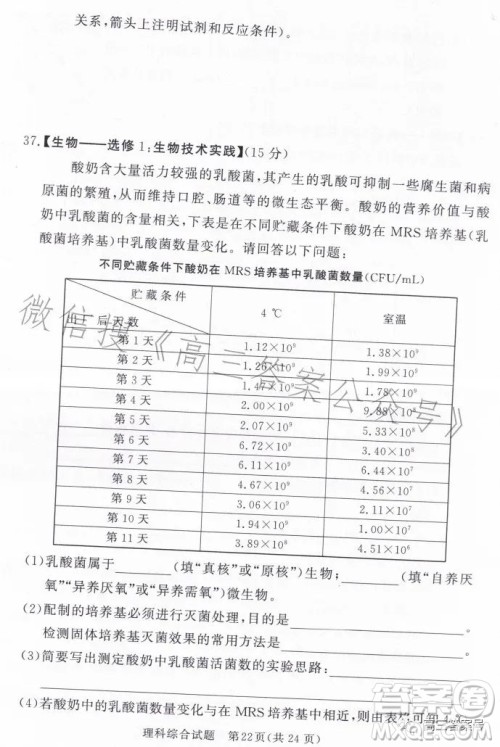 关系,箭头上注明试剂和反应条件)。
37.【生物——选修1:生物技术实践】(15分)
酸奶含大量活力较强的乳酸菌,其产生的乳酸可抑制一些腐生菌和病
原菌的繁殖,从而维持口腔、肠道等的微生态平衡。酸奶的营养价值与酸
奶中乳酸菌的含量相关,下表是在不同贮藏条件下酸奶在MRS培养基(乳
酸菌培养基)中乳酸菌数量变化。请回答以下问题:
不同贮藏条件下酸奶在MRS培养基中乳酸菌数量(CFU/mL)
贮藏条件 4℃ 室温
后天数
第1天 1.12×10⁹ 1.38×10⁹
第2天 1.26×10⁹ 1.99×10⁹
第3天 1.47×10⁹ 1.78×10⁹
第4天 2.00×10⁹ 9.88×10⁸
第5天 2.07×10⁹ 5.33×10⁸
第6天 6.72×10⁹ 3.40×10⁸
第7天 6.11×10⁹ 2.46×10⁸
第9天 3.06×10⁹
第10天 1.94×10⁹
第11天 3.89×10⁸ 4.51×10⁶
(1)乳酸菌属于(填“真核”或“原核”)生物;(填“自养厌
氧”或“异养厌氧”或“异养需氧”)微生物。
(2)配制的培养基必须进行灭菌处理,目的是。
检测固体培养基灭菌效果的常用方法是。
(3)简要写出测定酸奶中乳酸菌活菌数的实验思路:
。
(4)若酸奶中的乳酸菌数量变化与在MRS培养基中相近,则由表
理科综合试题 第22页(共24页)
微信搜《高三答案公众号》
答案圈